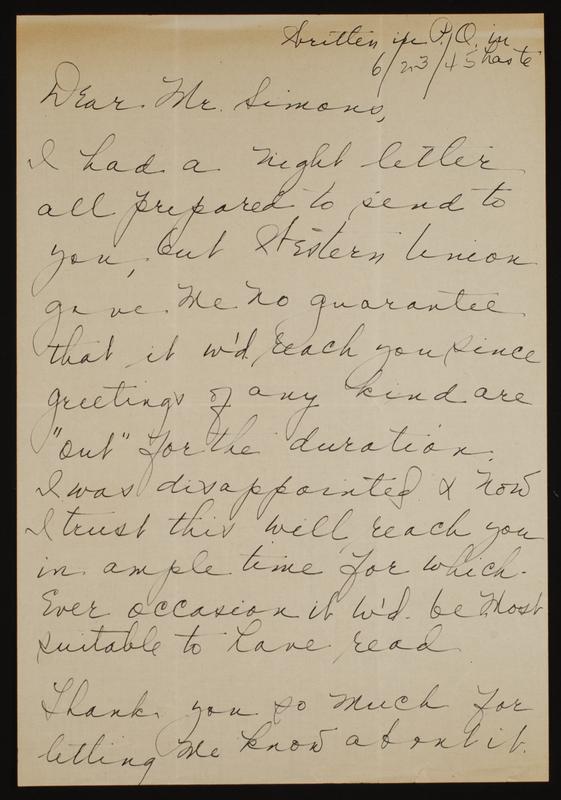 Written in P.O. in
6/23/45 haste
Dear Mr. Simons,
I had a night letter
all prepared to send to
you, but Western Union
gave me no guarantee
that it w'd reach you since
greetings of any kind are
"out" for the duration.
I was disappointed & now
I trust this will reach you
in ample time for which-
ever occasion it w'd. be most
suitable to have read
Thank you so much for
letting me know about it.